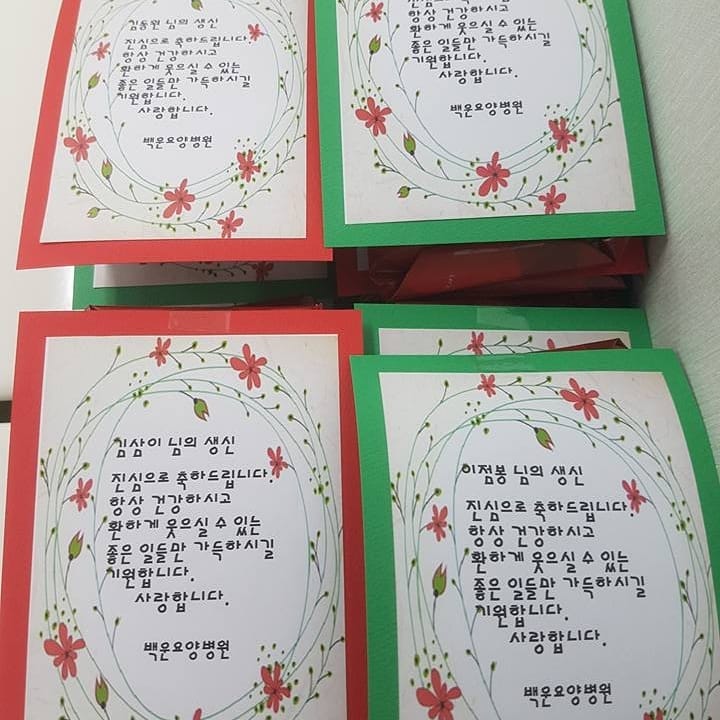 김동원 님의 생신
진심으로 축하드립니다.
항상 건강하시고
환하게 웃으실 수 있는
좋은 일들만 가득하시길
기원합니다.
사랑합니다.
백운요양병원
항상 건강하시고
환하게 웃으실 수 있는
좋은 일들만 가득하시길
기원합니다.
사랑합니다.
백운요양병원
김삼이 님의 생신
진심으로 축하드립니다.
항상 건강하시고
환하게 웃으실 수 있는
좋은 일들만 가득하시길
기원합니다.
사랑합니다.
백운요양병원
이점봉 님의 생신
진심으로 축하드립니다.
항상 건강하시고
환하게 웃으실 수 있는
좋은 일들만 가득하시길
기원합니다.
사랑합니다.
백운요양병원